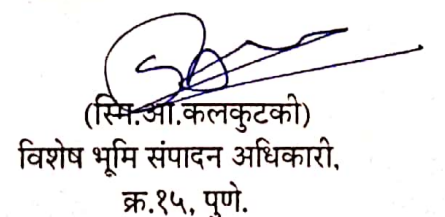 (स्मि.आ.कलकुटकी)
विशेष भूमि संपादन अधिकारी,
क्र.१५, पुणे.